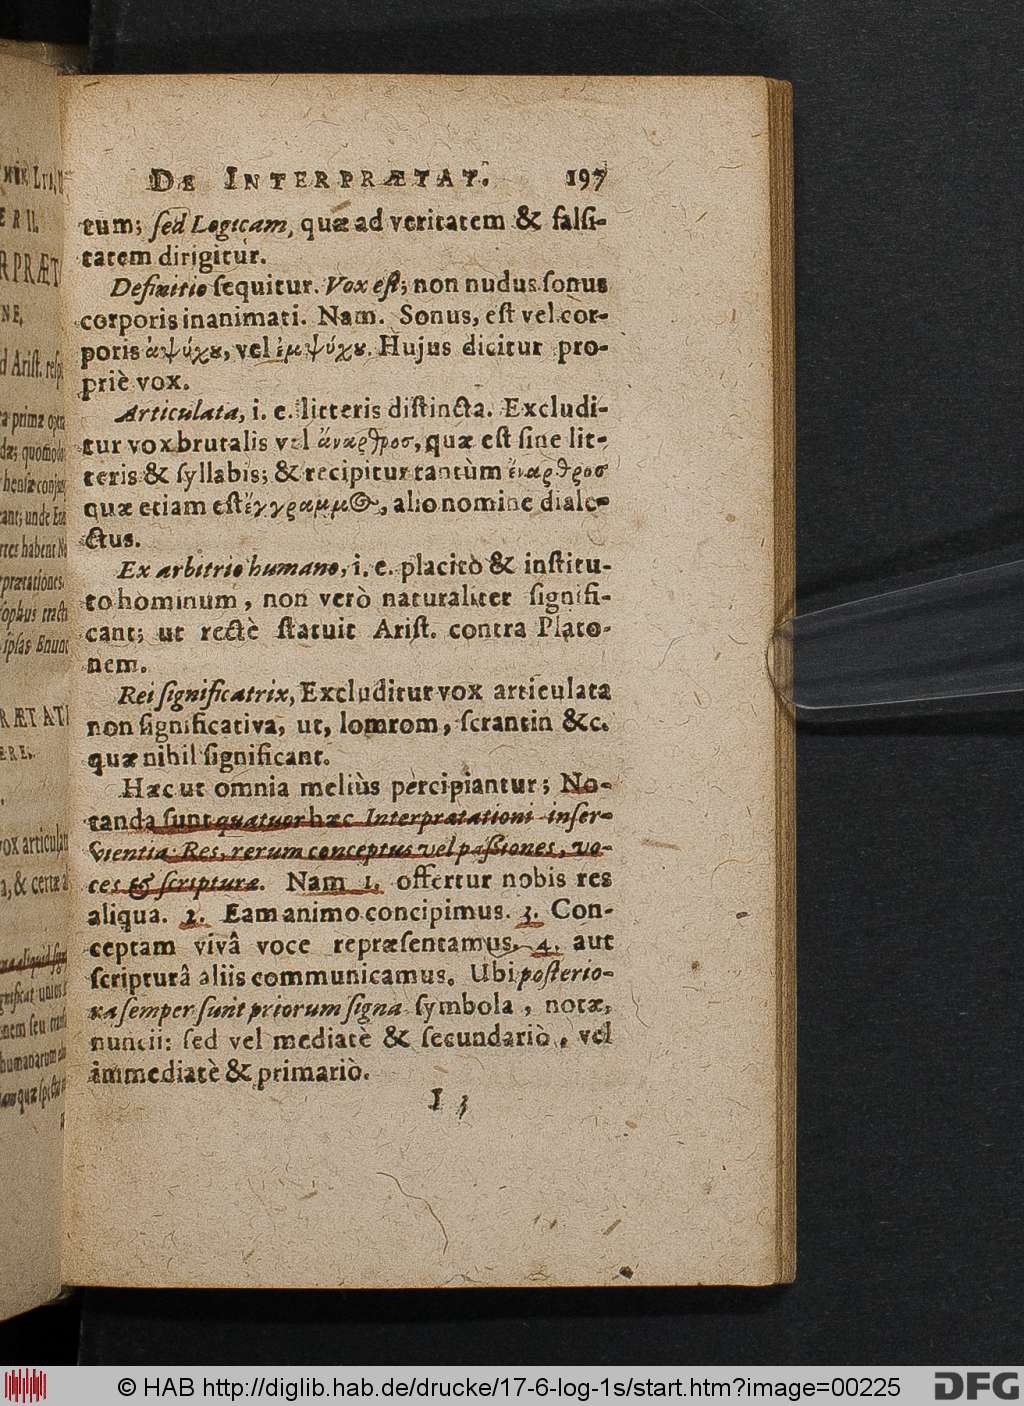 DE INTERPRÆTAT. 197
tum; ſed Logicam, quæ ad veritatem & falſi-
tatem dirigitur.
Definitio ſequitur. Vox eſt; non nudus ſonus
corporis inanimati. Nam. Sonus, eſt vel cor-
poris ἀψύχȣ, vel ἐμψύχȣ. Hujus dicitur pro-
priè vox.
Articulata, i. e. litteris diſtincta. Excludi-
tur vox brutalis vel ἄναρθροσ, quæ eſt ſine lit-
teris & ſyllabis; & recipitur tantùm ἔναρθροσ
quæ etiam eſt ἔγγραμμ, alio nomine diale-
ctus.
Ex arbitrio humano, i. e. placito & inſtitu-
to hominum, non verò naturaliter ſignifi-
cant; ut rectè ſtatuit Ariſt. contra Plato-
nem.
Rei ſignificatrix, Excluditur vox articulata
non ſignificativa, ut, lomrom, ſcrantin &c.
quæ nihil ſignificant.
Hæc ut omnia meliùs percipiantur; No-
tanda ſunt quatuor hæc Interprætationi inſer-
vientia: Res, rerum conceptus vel paſſiones, vo-
ces & ſcripturæ. Nam 1. offertur nobis res
aliqua. 2. Eam animo concipimus. 3. Con-
ceptam vivâ voce repræſentamus. 4. aut
ſcripturâ aliis communicamus. Ubi poſterio-
ra ſemper ſunt priorum ſigna ſymbola, notæ,
nuncii: ſed vel mediatè & ſecundariò, vel
immediatè & primariò.
I 3
© HAB http://diglib.hab.de/drucke/17-6-log-1s/start.htm?image=00225
DFG